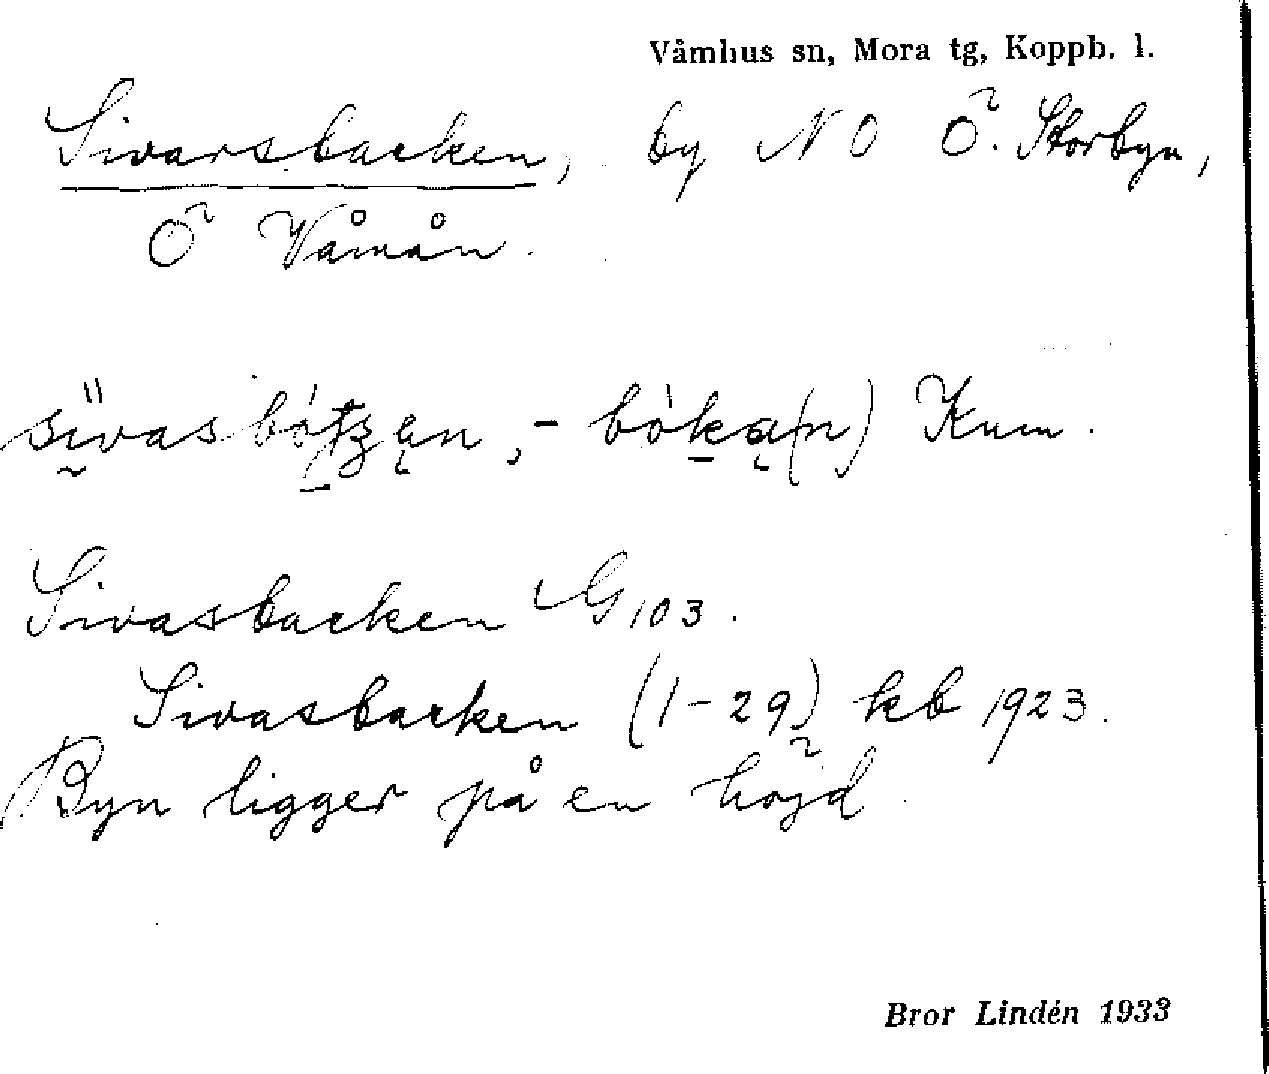 Våmhus sn, Mora tg, Koppb. l.
Sivarsbacken, by NO Ö. Storbyn,
Ö Våmån.
Kum.
Sivasbacken G 103.
Sivasbacken (1-29) kb 1923.
Byn ligger på en höjd.
Bror Lindén 1933